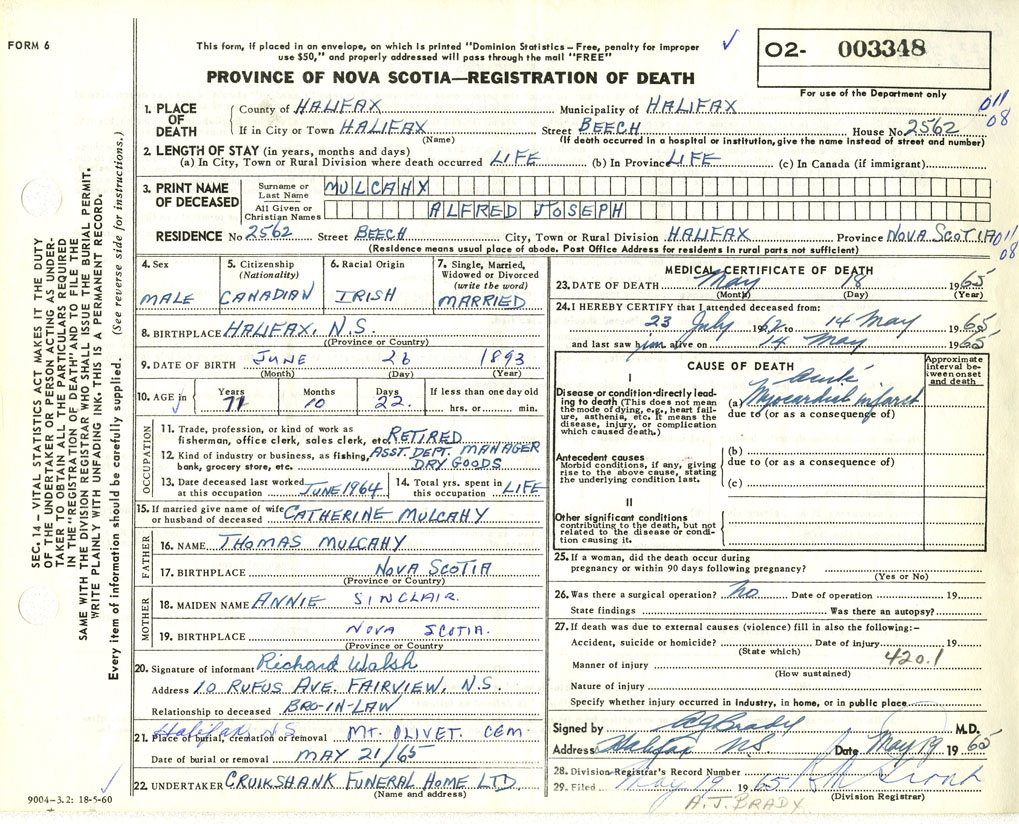 FORM 6
This form, if placed in an envelope, on which is printed "Dominion Statistics – Free, penalty for improper
use $50," and properly addressed will pass through the mail "FREE"
PROVINCE OF NOVA SCOTIA—REGISTRATION OF DEATH
O2- 003348
For use of the Department only
011
08
1. PLACE OF DEATH
County of HALIFAX Municipality of HALIFAX
If in City or Town HALIFAX Street BEECH House No 2562
(Name) (If death occurred in a hospital or institution, give the name instead of street and number)
2. LENGTH OF STAY (in years, months and days)
(a) In City, Town or Rural Division where death occurred LIFE (b) In Province LIFE (c) In Canada (if immigrant)
3. PRINT NAME OF DECEASED
Surname or Last Name MULCAHY
All Given or Christian Names ALFRED JOSEPH
RESIDENCE No 2562 Street BEECH City, Town or Rural Division HALIFAX Province NOVA SCOTIA
011
08
(Residence means usual place of abode. Post Office Address for residents in rural parts not sufficient)
4. Sex MALE
5. Citizenship (Nationality) CANADIAN
6. Racial Origin IRISH
7. Single, Married, Widowed or Divorced (write the word) MARRIED
8. BIRTHPLACE HALIFAX, N.S.
(Province or Country)
9. DATE OF BIRTH JUNE 26 1893
(Month) (Day) (Year)
10. AGE in Years 71 Months 10 Days 22 If less than one day old hrs. or min.
OCCUPATION
11. Trade, profession, or kind of work as
fisherman, office clerk, sales clerk, etc RETIRED
12. Kind of industry or business, as fishing, ASST. DEPT. MANAGER
bank, grocery store, etc. DRY GOODS
13. Date deceased last worked at this occupation JUNE 1964
14. Total yrs. spent in this occupation LIFE
15. If married give name of wife or husband of deceased CATHERINE MULCAHY
FATHER
16. NAME THOMAS MULCAHY
17. BIRTHPLACE NOVA SCOTIA
(Province or Country)
MOTHER
18. MAIDEN NAME ANNIE SINCLAIR
19. BIRTHPLACE NOVA SCOTIA.
(Province or Country
20. Signature of informant Richard Walsh
Address 10 RUFUS AVE. FAIRVIEW, N.S.
Relationship to deceased BRO-IN-LAW
Halifax NS
21. Place of burial, cremation or removal MT. OLIVET. CEM.
Date of burial or removal MAY 21/65
22. UNDERTAKER CRUIKSHANK FUNERAL HOME LTD.
(Name and address)
MEDICAL CERTIFICATE OF DEATH
23. DATE OF DEATH May 18 1965
(Month) (Day) (Year)
24. I HEREBY CERTIFY that I attended deceased from:
23 July 1962 to 14 May 1965
and last saw him alive on 14 May 1965
CAUSE OF DEATH
Approximate interval between onset and death
I
Disease or condition directly leading to death (This does not mean the mode of dying, e.g., heart failure, asthenia, etc. It means the disease, injury, or complication which caused death.)
(a) Acute Myocardial infarct
due to (or as a consequence of)
Antecedent causes
Morbid conditions, if any, giving rise to the above cause, stating the underlying condition last.
(b)
due to (or as a consequence of)
(c)
II
Other significant conditions
contributing to the death, but not related to the disease or condition causing it.
25. If a woman, did the death occur during
pregnancy or within 90 days following pregnancy?
(Yes or No)
26. Was there a surgical operation? no Date of operation 19
State findings Was there an autopsy?
27. If death was due to external causes (violence) fill in also the following:–
Accident, suicide or homicide? Date of injury 19
(State which) 420.1
Manner of injury
(How sustained)
Nature of injury
Specify whether injury occurred in industry, in home, or in public place
Signed by AJ Brady M.D.
Address Halifax N.S. Date May 19 1965
28. Division Registrar's Record Number
29. Filed May 19 1965
(Division Registrar)
A.J. BRADY
SEC. 14 – VITAL STATISTICS ACT MAKES IT THE DUTY
OF THE UNDERTAKER OR PERSON ACTING AS UNDER-
TAKER TO OBTAIN ALL THE PARTICULARS REQUIRED
IN THE "REGISTRATION OF DEATH" AND TO FILE THE
SAME WITH THE DIVISION REGISTRAR WHO SHALL ISSUE THE BURIAL PERMIT.
WRITE PLAINLY WITH UNFADING INK. THIS IS A PERMANENT RECORD.
Every item of information should be carefully supplied. (See reverse side for instructions.)
9004–3.2: 18-5-60